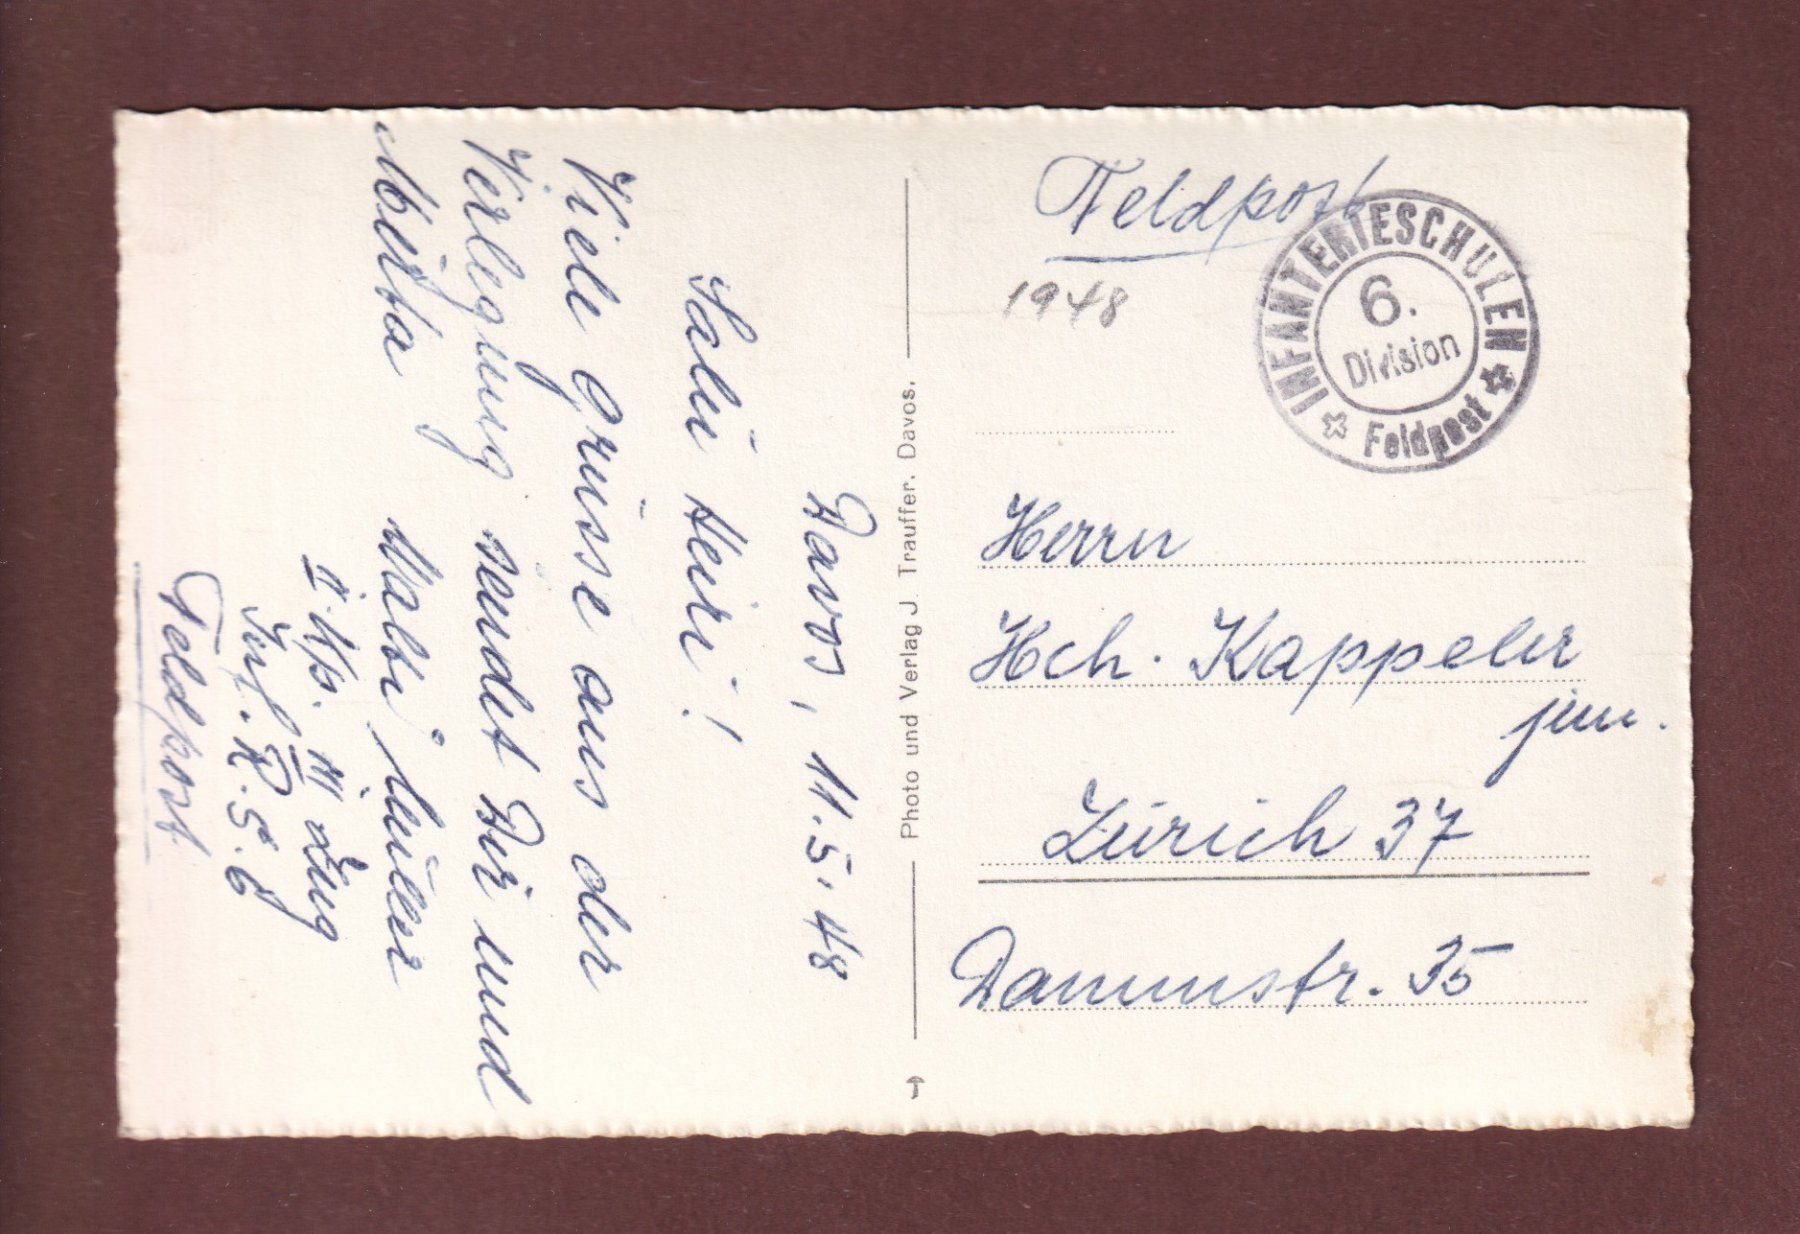 Feldpost
1948
INFANTERIESCHULEN
6.
Division
Feldpost
Herrn
Hch. Kappeler
jun.
Zürich 37
Dammstr. 35
Photo und Verlag J. Trauffer, Davos.
Davos, 11.5.48
Salü Heiri!
Viele Grüsse aus der
Verlegung sendet Dir und
Müller
II. Kp. III Zug
Inf. R.S. 6
Feldpost